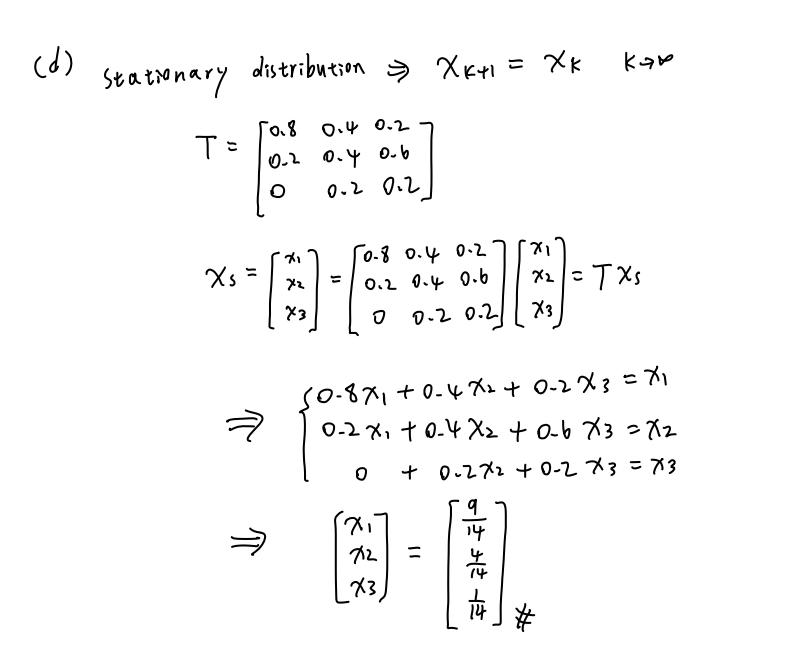 (d) Stationary distribution ⇒ x_{k+1} = x_k k→∞
T = [0.8 0.4 0.2
0.2 0.4 0.6
0 0.2 0.2]
x_s = [x_1 x_2 x_3] = [0.8 0.4 0.2; 0.2 0.4 0.6; 0 0.2 0.2] [x_1 x_2 x_3] = T x_s
⇒ { 0.8x_1 + 0.4x_2 + 0.2x_3 = x_1
0.2x_1 + 0.4x_2 + 0.6x_3 = x_2
0 + 0.2x_2 + 0.2x_3 = x_3
⇒ [x_1 x_2 x_3] = [9/14 4/14 1/14] #